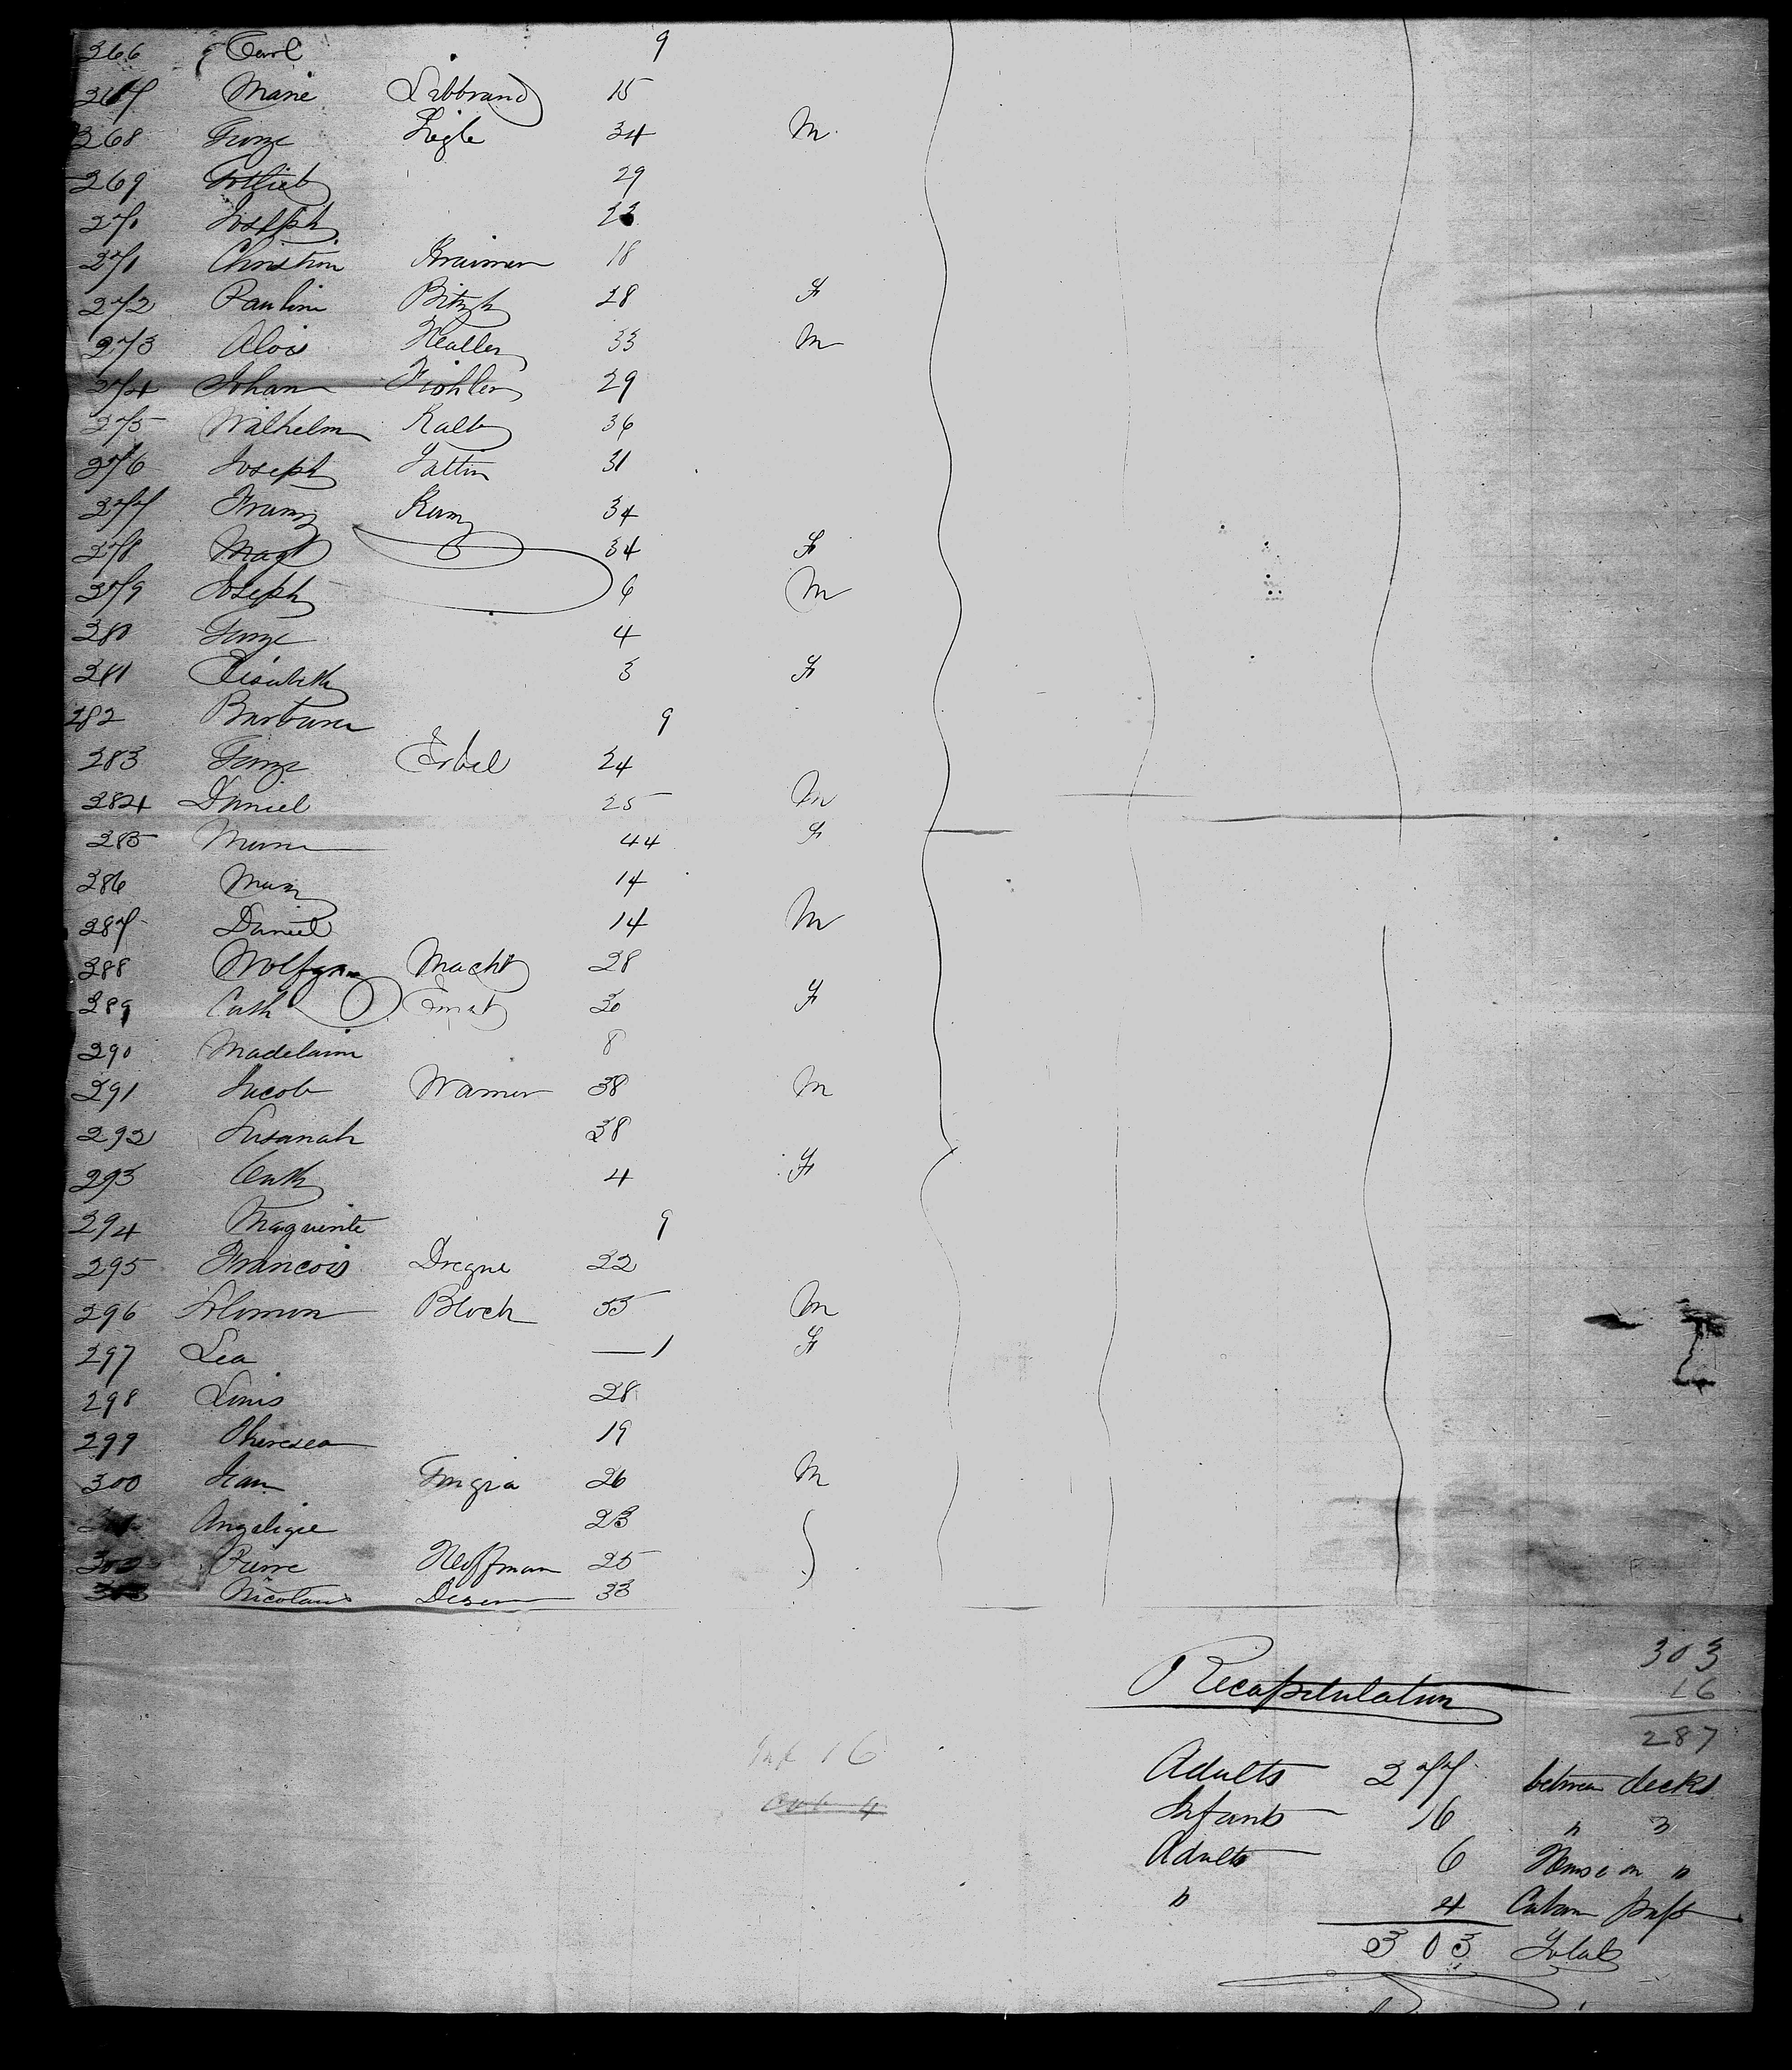 266 Carl 9
267 Marie Libbrand 15
268 Franz 34 M
269 Gottlieb 29
270 Joseph 22
271 Christian 18
272 Paulin 28 F
273 Alois Heallen 33 M
274 Johann Fiohler 29
275 Wilhelm Kalb 36
276 Joseph 31
277 Franz Kunz 34
278 Magd 34 F
279 Joseph 6 M
280 4
281 Elisabeth 3 F
282 Barbara 9
283 Erbel 24
284 Daniel 25 M
285 44 F
286 14
287 Daniel 14 M
288 Wolfgang Macht 28
289 Cath Ernst 30 F
290 Madelaine 8
291 Jacob Warner 38 M
292 Susanah 38
293 Cath 4 F
294 Marguerite 9
295 Francois 22
296 Solomon Bloch 55 M
297 Lea — 1 F
298 Louis 28
299 Theresea 19
300 Jean 26 M
301 Angelique 23
302 Pierre Hoffman 25
303 Nicolaus 33
303
16
287
Recapitulation
Inf 16
Adults 277 between decks
Infants 16 " "
Adults 6 House on "
" 4 Cabin pass
303 Total